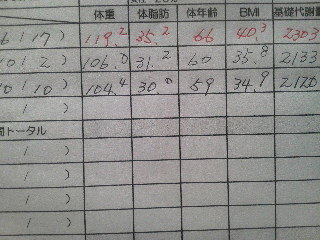 体重 体脂肪 体年齢 BMI 基礎代謝量
6 ( 17 ) 119.2 35.2 66 40.3 2303
10 ( 2 ) 106.0 31.2 60 35.8 2133
10 ( 10 ) 104.4 30.0 59 34.9 2120
( )
トータル
( )
( )
( )
( )